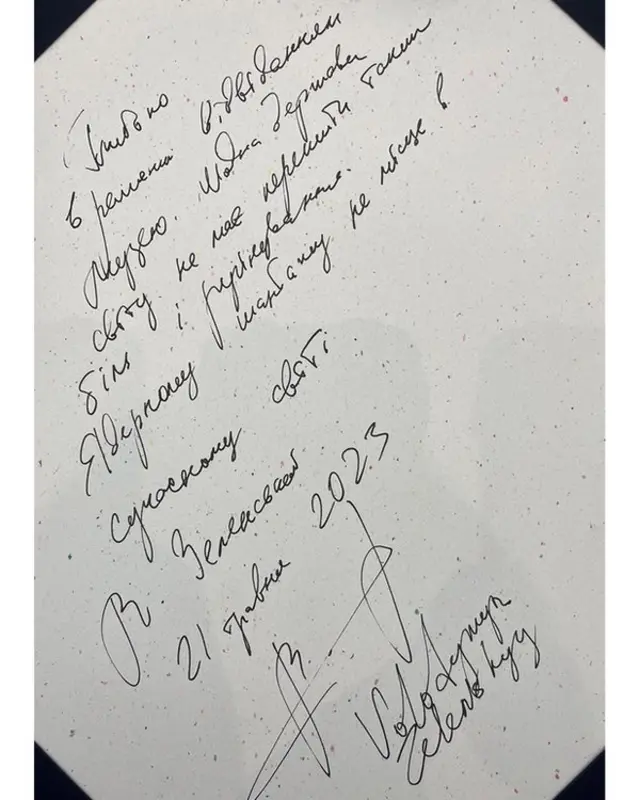 Глибоко
вражений відвіданням
музею. Жодна держава
світу не має пережити такий
біль і руйнування.
Ядерному шантажу не місце в
сучасному світі
В. Зеленський
21 травня 2023
Volodymyr
Zelenskyy